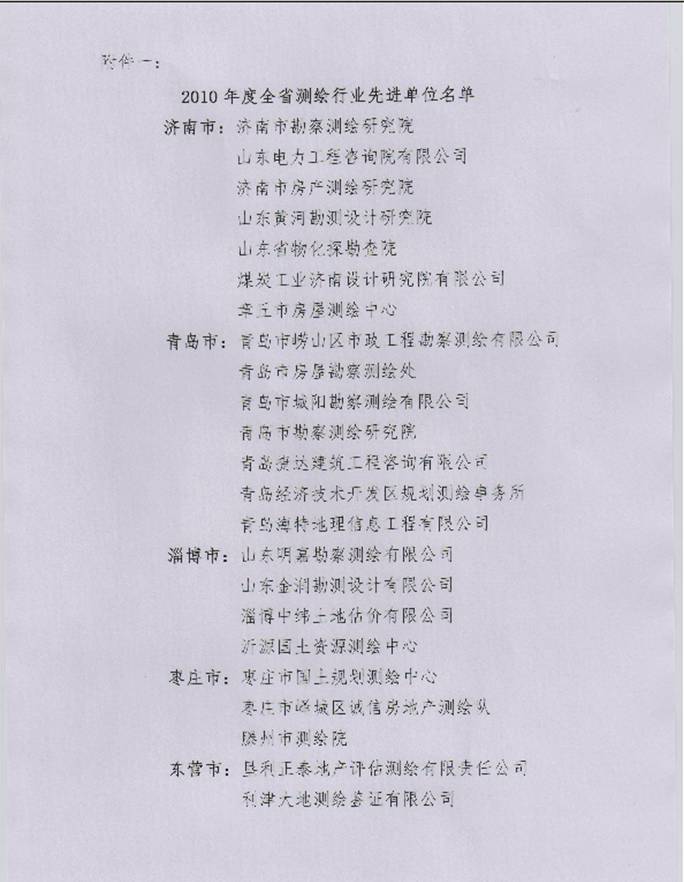 附件一：
2010 年度全省测绘行业先进单位名单
济南市：济南市勘察测绘研究院
山东电力工程咨询院有限公司
济南市房产测绘研究院
山东黄河勘测设计研究院
山东省物化探勘查院
煤炭工业济南设计研究院有限公司
章丘市房屋测绘中心
青岛市：青岛市崂山区市政工程勘察测绘有限公司
青岛市房屋勘察测绘处
青岛市城阳勘察测绘有限公司
青岛市勘察测绘研究院
青岛捷达建筑工程咨询有限公司
青岛经济技术开发区规划测绘事务所
青岛海特地理信息工程有限公司
淄博市：山东明嘉勘察测绘有限公司
山东金润勘测设计有限公司
淄博中纬土地估价有限公司
沂源国土资源测绘中心
枣庄市：枣庄市国土规划测绘中心
枣庄市峄城区诚信房地产测绘队
滕州市测绘院
东营市：垦利正泰地产评估测绘有限责任公司
利津大地测绘鉴证有限公司